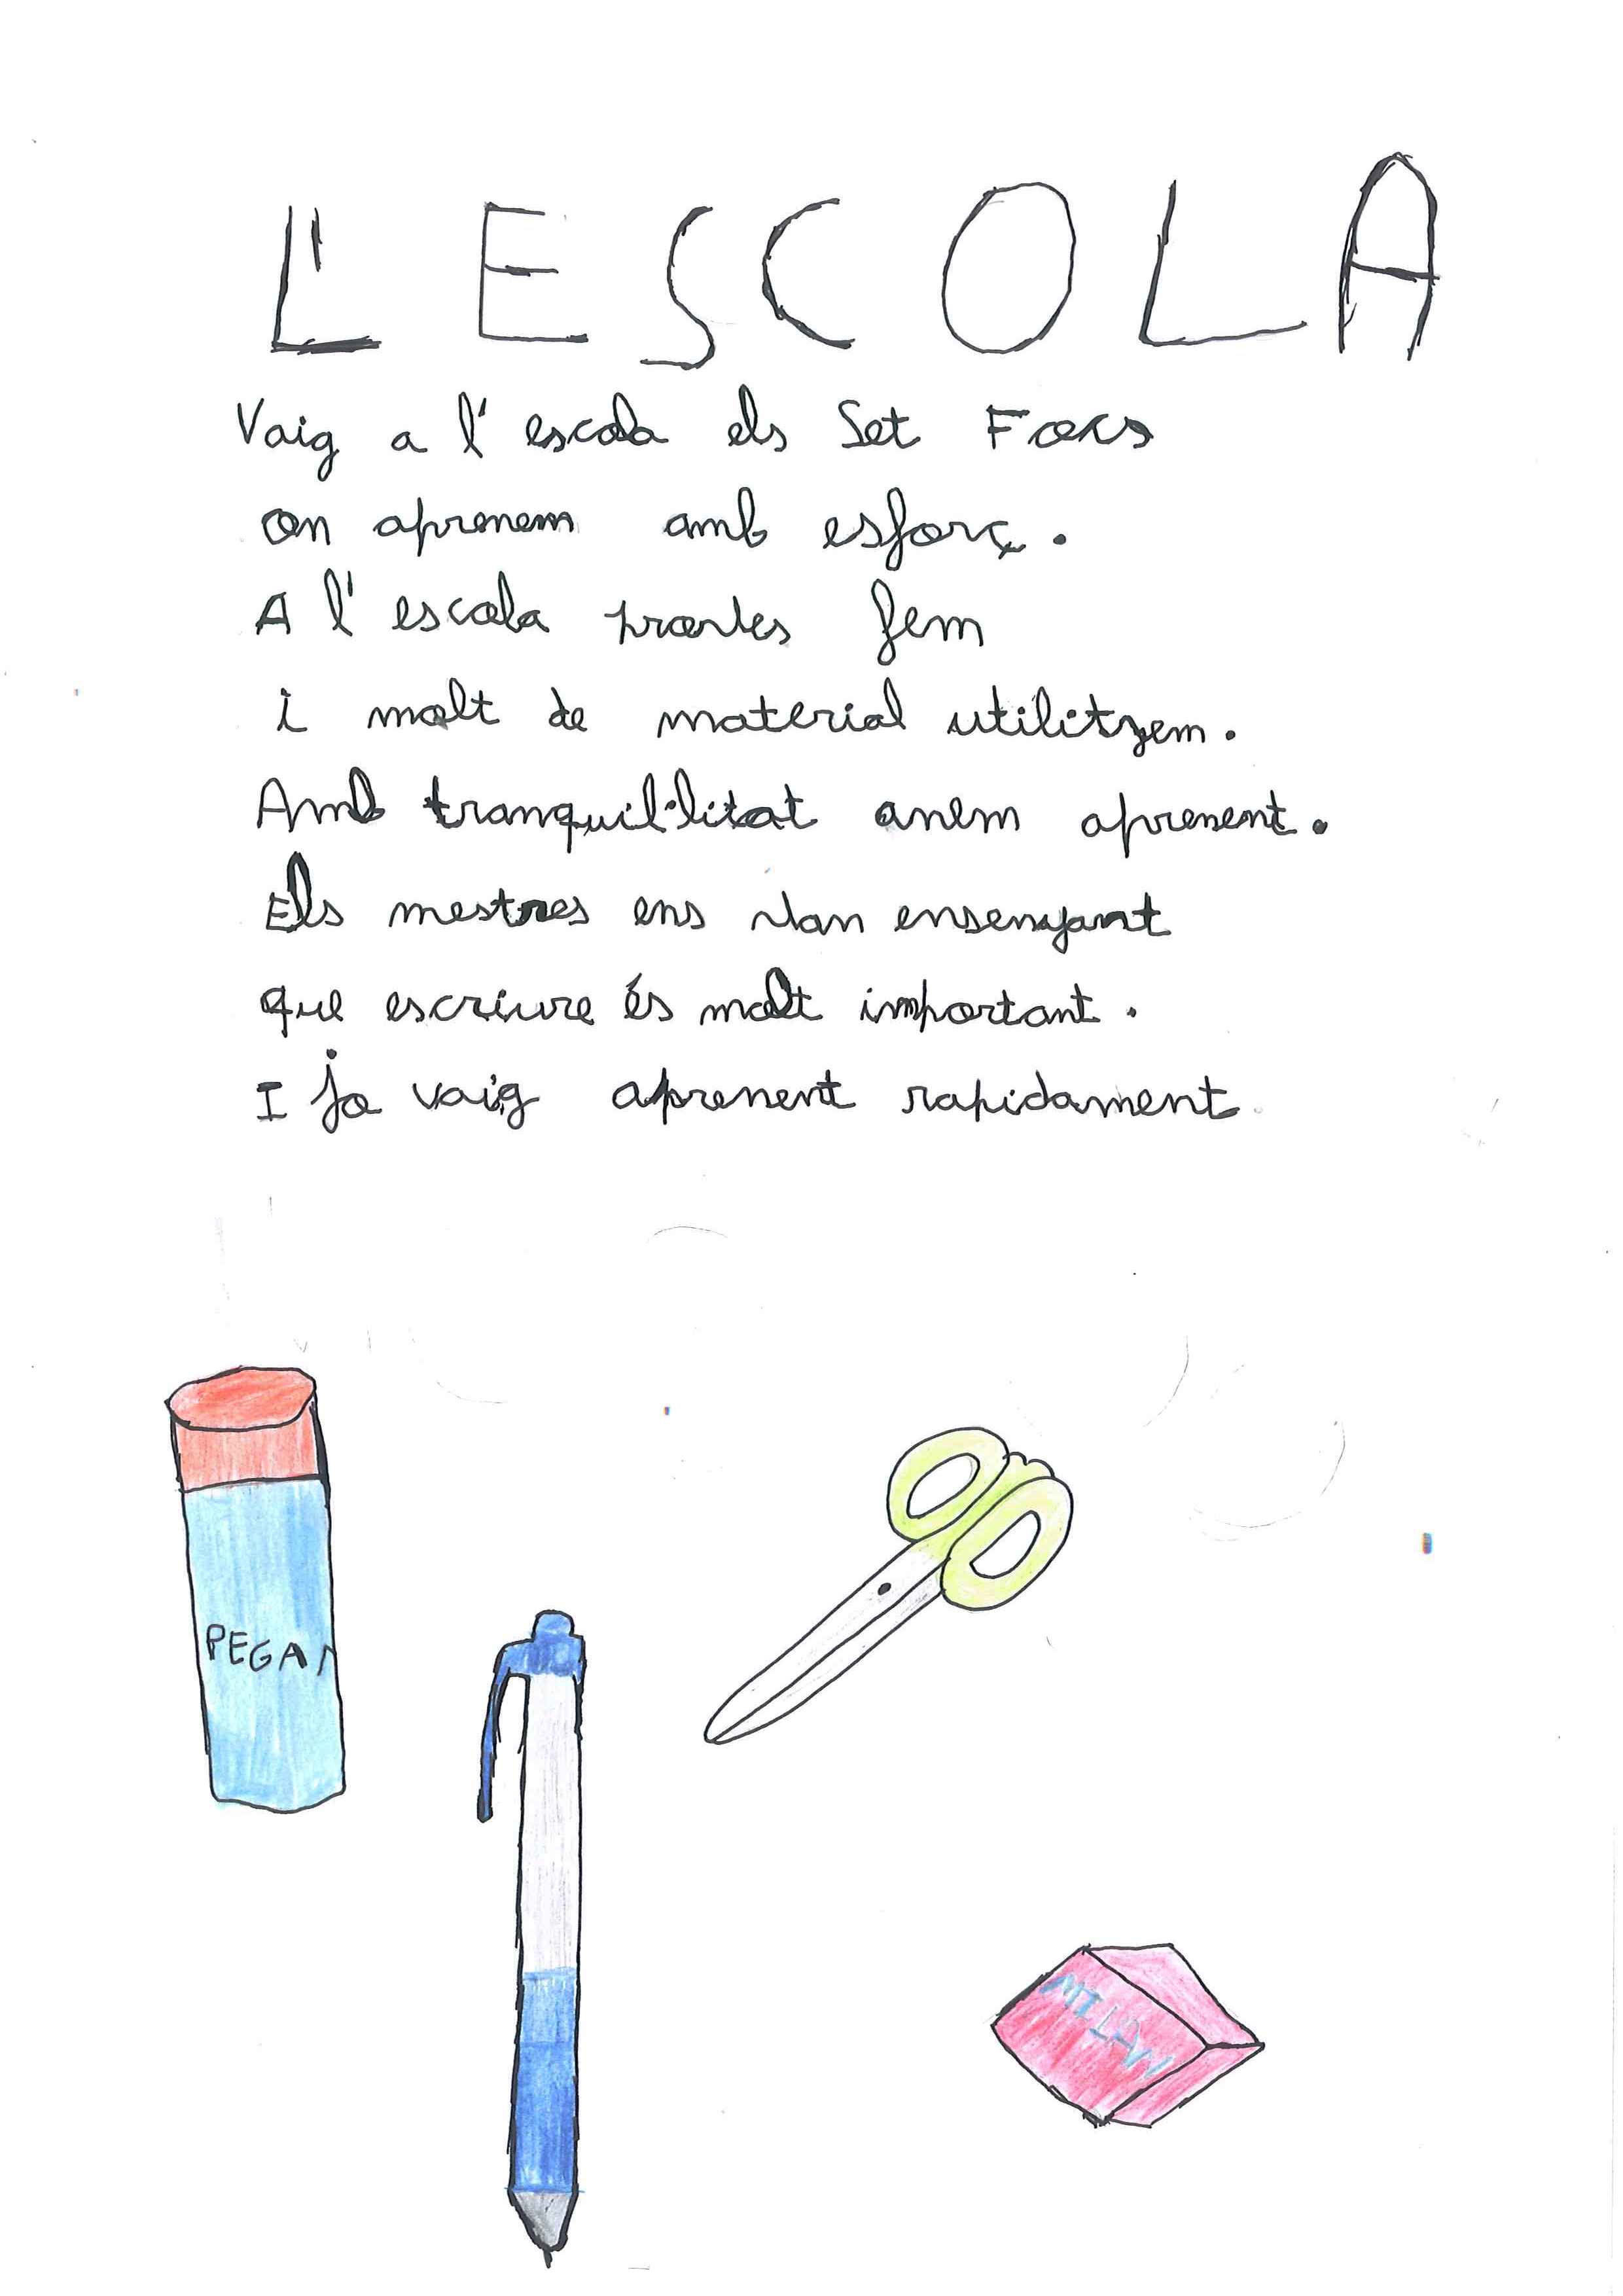 L'ESCOLA
Vaig a l'escola els Set Focs
on aprenem amb esforç.
A l'escola proves fem
i molt de material utilitzem.
Amb tranquil·litat anem aprenent.
Els mestres ens van ensenyant
que escriure és molt important.
I jo vaig aprenent rapidament
PEGA
MILAN